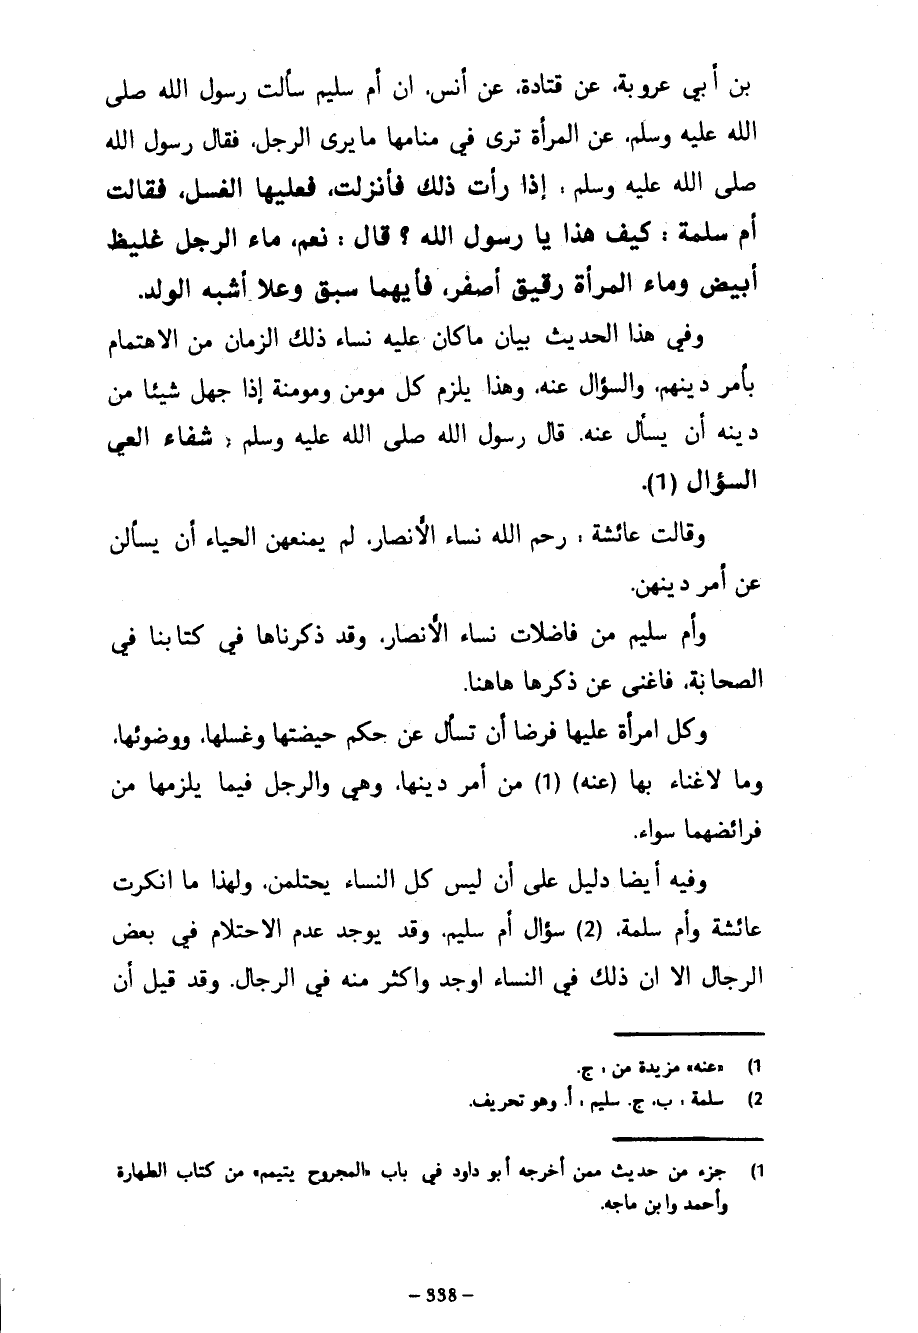 بن أبي عروبة، عن قتادة، عن أنس، ان أم سليم سألت رسول الله صلى
الله عليه وسلم، عن المرأة ترى في منامها مايرى الرجل، فقال رسول الله
صلى الله عليه وسلم : إذا رأت ذلك فأنزلت، فعليها الغسل، فقالت
أم سلمة : كيف هذا يا رسول الله ؟ قال : نعم، ماء الرجل غليظ
أبيض وماء المرأة رقيق أصفر، فأيهما سبق وعلا أشبه الولد.
وفي هذا الحديث بيان ماكان عليه نساء ذلك الزمان من الاهتمام
بأمر دينهم، والسؤال عنه، وهذا يلزم كل مومن ومومنة إذا جهل شيئا من
دينه أن يسأل عنه. قال رسول الله صلى الله عليه وسلم : شفاء العي
السؤال (1).
وقالت عائشة : رحم الله نساء الأنصار، لم يمنعهن الحياء أن يسألن
عن أمر دينهن.
وأم سليم من فاضلات نساء الأنصار، وقد ذكرناها في كتابنا في
الصحابة، فاغنى عن ذكرها هاهنا.
وكل امرأة عليها فرضا أن تسأل عن حكم حيضتها وغسلها، ووضوئها،
وما لاغناء بها (عنه) (1) من أمر دينها، وهي والرجل فيما يلزمها من
فرائضهما سواء.
وفيه أيضا دليل على أن ليس كل النساء يحتلمن، ولهذا ما انكرت
عائشة وأم سلمة، (2) سؤال أم سليم، وقد يوجد عدم الاحتلام في بعض
الرجال الا ان ذلك في النساء اوجد واكثر منه في الرجال. وقد قيل أن
1) «عنه» مزيدة من : ج.
2) سلمة : ب، ج. سليم : أ. وهو تحريف.
1) جزء من حديث ممن أخرجه أبو داود في باب «المجروح يتيمم» من كتاب الطهارة
وأحمد وابن ماجه.
– 338 –